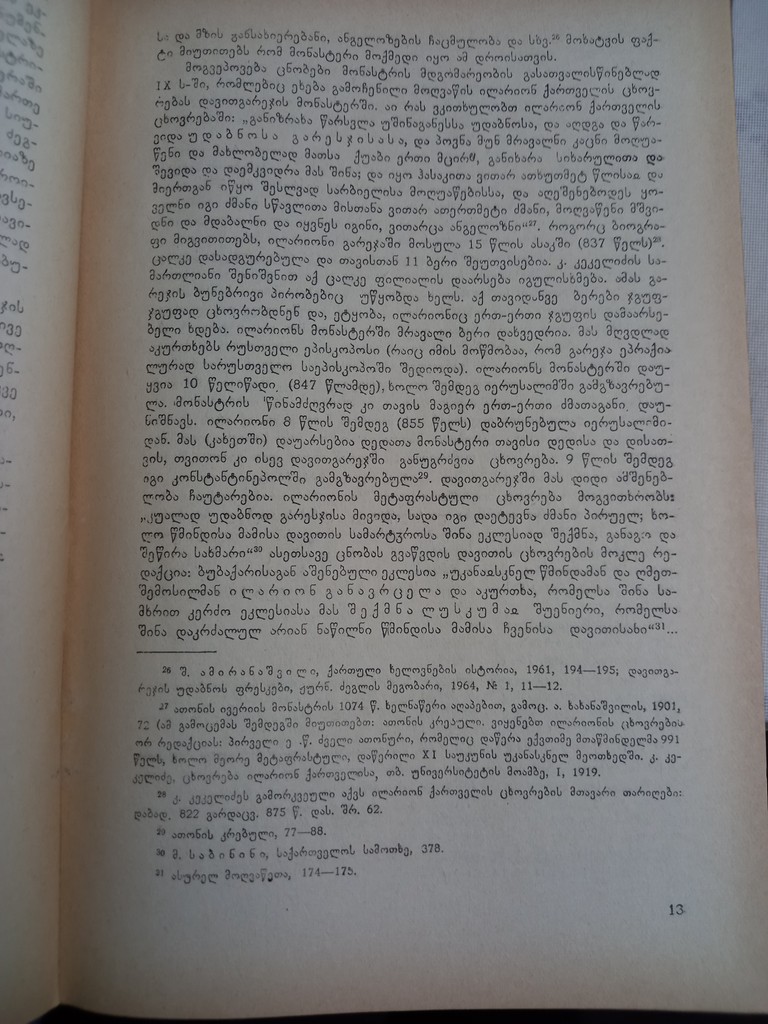 სა და მზის განსახიერებანი, ანგელოზების ჩაცმულობა და სხვ.²⁶ მოხატვის ფაქ-
ტი მიუთითებს რომ მონასტერი მოქმედი იყო ამ დროისათვის.
მოგვეპოვება ცნობები მონასტრის მდგომარეობის გასათვალისწინებლად
IX ს-ში, რომლებიც ეხება გამოჩენილი მოღვაწის ილარიონ ქართველის ცხოვ-
რებას დავითგარეჯის მონასტერში. აი რას ვკითხულობთ ილარიონ ქართველის
ცხოვრებაში: „განიზრახა წარსვლა უშინაგანესსა უდაბნოსა, და აღდგა და წარ-
ვიდა უდაბნოსა გარესჯისასა, და პოვნა მუნ მრავალნი კაცნი მოღუა-
წენი და მახლობელად მათსა ქუაბი ერთი მცირჱ, განიხარა სიხარულითა და
შევიდა და დაემკვიდრა მას შინა; და იყო ჰასაკითა ვითარ ათხუთმეტ წლისაჲ და
მიერთგან იწყო შესლვად სარბიელსა მოღუაწებისსა, და აღეშენებოდეს ყო-
ველნი იგი ძმანი სწავლითა მისთანა ვითარ ათერთმეტი ძმანი, მოღვაწენი მშვი-
დნი და მდაბალნი და იყვნეს იგინი, ვითარცა ანგელოზნი“²⁷. როგორც ბიოგრა-
ფი მიგვითითებს, ილარიონი გარეჯაში მოსულა 15 წლის ასაკში (837 წელს)²⁸.
ცალკე დასადგურებულა და თავისთან 11 ბერი შეუთვისებია. კ. კეკელიძის სა-
მართლიანი შენიშვნით აქ ცალკე ფილიალის დაარსება იგულისხმება. ამას გა-
რეჯის ბუნებრივი პირობებიც უწყობდა ხელს. აქ თავიდანვე ბერები ჯგუფ-
ჯგუფად ცხოვრობდნენ და, ეტყობა, ილარიონიც ერთ-ერთი ჯგუფის დამაარსე-
ბელი ხდება. ილარიონს მონასტერში მრავალი ბერი დახვედრია. მას მღვდლად
აკურთხებს რუსთველი ეპისკოპოსი (რაიც იმის მოწმობაა, რომ გარეჯა ეპრაქია
ლურად სარუსთველო საეპისკოპოში შედიოდა). ილარიონს მონასტერში დაუ-
ყვია 10 წელიწადი. (847 წლამდე), ხოლო შემდეგ იერუსალიმში გამგზავრებუ-
ლა. მონასტრის წინამძღვრად კი თავის მაგიერ ერთ-ერთი ძმათაგანი დაუ-
ნიშნავს. ილარიონი 8 წლის შემდეგ (855 წელს) დაბრუნებულა იერუსალიმი-
დან. მას (კახეთში) დაუარსებია დედათა მონასტერი თავისი დედისა და დისათ-
ვის, თვითონ კი ისევ დავითგარეჯში განუგრძვია ცხოვრება. 9 წლის შემდეგ
იგი კონსტანტინეპოლში გამგზავრებულა²⁹. დავითგარეჯში მას დიდი აშშენებ-
ლობა ჩაუტარებია. ილარიონის მეტაფრასტული ცხოვრება მოგვითხრობს:
„კუალად უდაბნოდ გარესჯისა მივიდა, სადა იგი დაეტევნა ძმანი პირუელ; ხო-
ლო წმინდისა მამისა დავითის სამარტჳროსა შინა ეკლესიად შექმნა, განაგო და
შეწირა სახმარი“³⁰ ასეთსავე ცნობას გვაწვდის დავითის ცხოვრების მოკლე რე-
დაქცია: ბუბაქარისაგან აშენებული ეკლესია „უკანაჲსკნელ წმინდამან და ღმეთ-
შემოსილმან ილარიონ განავრცელა და აკურთხა, რომელსა შინა სა-
მხრით კერძო ეკლესიასა მას შექმნა ლუსკუმაჲ შუენიერი, რომელსა
შინა დაკრძალულ არიან ნაწილნი წმინდისა მამისა ჩვენისა დავითისანი“³¹...
²⁶ შ. ამირანაშვილი, ქართული ხელოვნების ისტორია, 1961, 194—195; დავითგა-
რეჯის უდაბნოს ფრესკები, ჟურნ. ძეგლის მეგობარი, 1964, № 1, 11—12.
²⁷ ათონის ივერიის მონასტრის 1074 წ. ხელნაწერი აღაპებით, გამოც. ა. ხახანაშვილის, 1901,
72 (ამ გამოცემას შემდეგში მიუთითებთ: ათონის კრებული. ვიყენებთ ილარიონის ცხოვრების
ორ რედაქციას: პირველი ე .წ. ძველი ათონური, რომელიც დაწერა ექვთიმე მთაწმინდელმა 991
წელს, ხოლო მეორე მეტაფრასტული, დაწერილი XI საუკუნის უკანასკნელ მეოთხედში. კ. კე-
კელიძე, ცხოვრება ილარიონ ქართველისა, თბ. უნივერსიტეტის მოამბე, I, 1919.
²⁸ კ. კეკელიძეს გამორკვეული აქვს ილარიონ ქართველის ცხოვრების მთავარი თარიღები:
დაბად. 822 გარდაცვ. 875 წ. დას. შრ. 62.
²⁹ ათონის კრებული, 77—88.
³⁰ მ. საბინინი, საქართველოს სამოთხე, 378.
³¹ ასურელ მოღვაწეთა, 174—175.
13